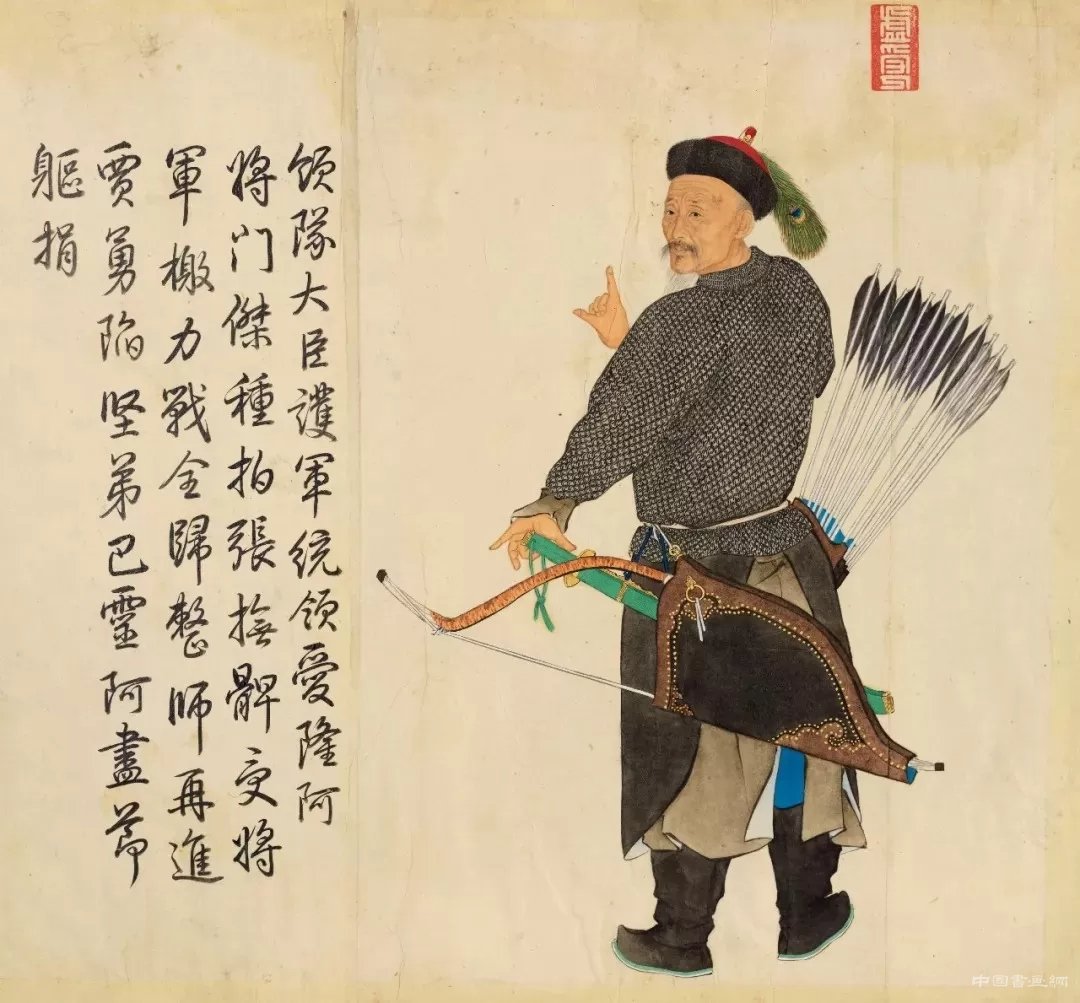 領隊大臣護軍統領愛隆阿
將門傑種拍張撫髀受將
軍檄力戰全歸整師再進
賈勇陷堅弟巴靈阿盡節
軀捐
中国書画網